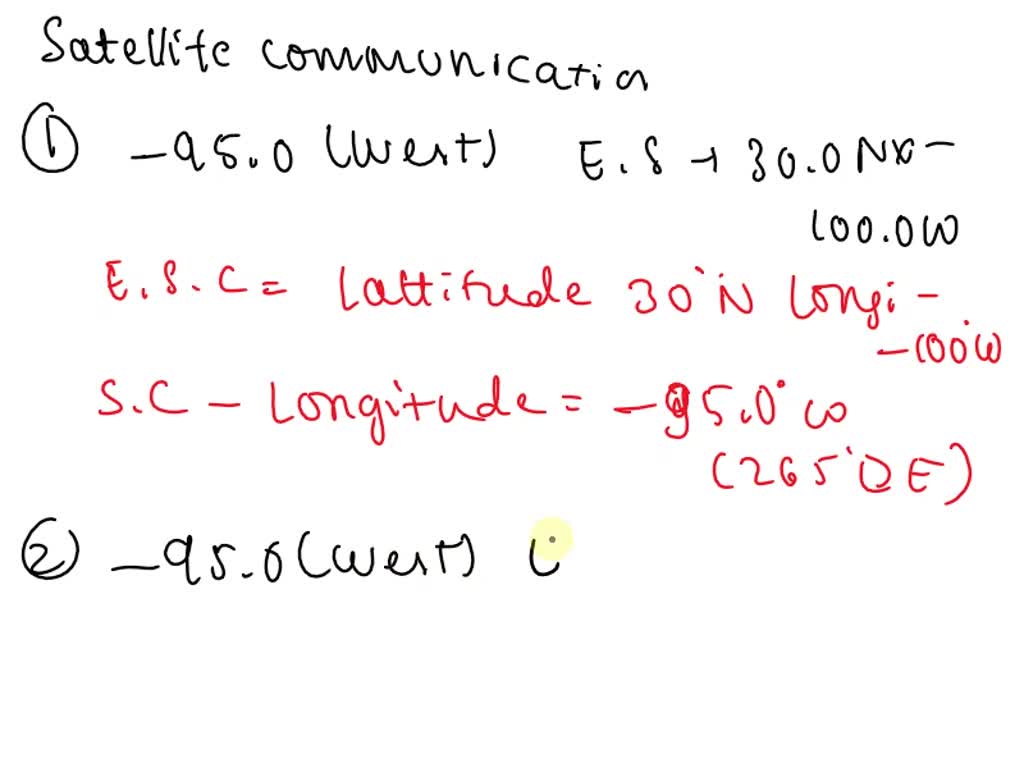 Satellite communication
① -95.0 (West) E.S → 30.0 N x -
100.0W
E.S.C = Lattitude 30°N Longi -
-100°W
S.C - Longitude = -95.0° W
(265°0 E)
② -95.0 (West) (